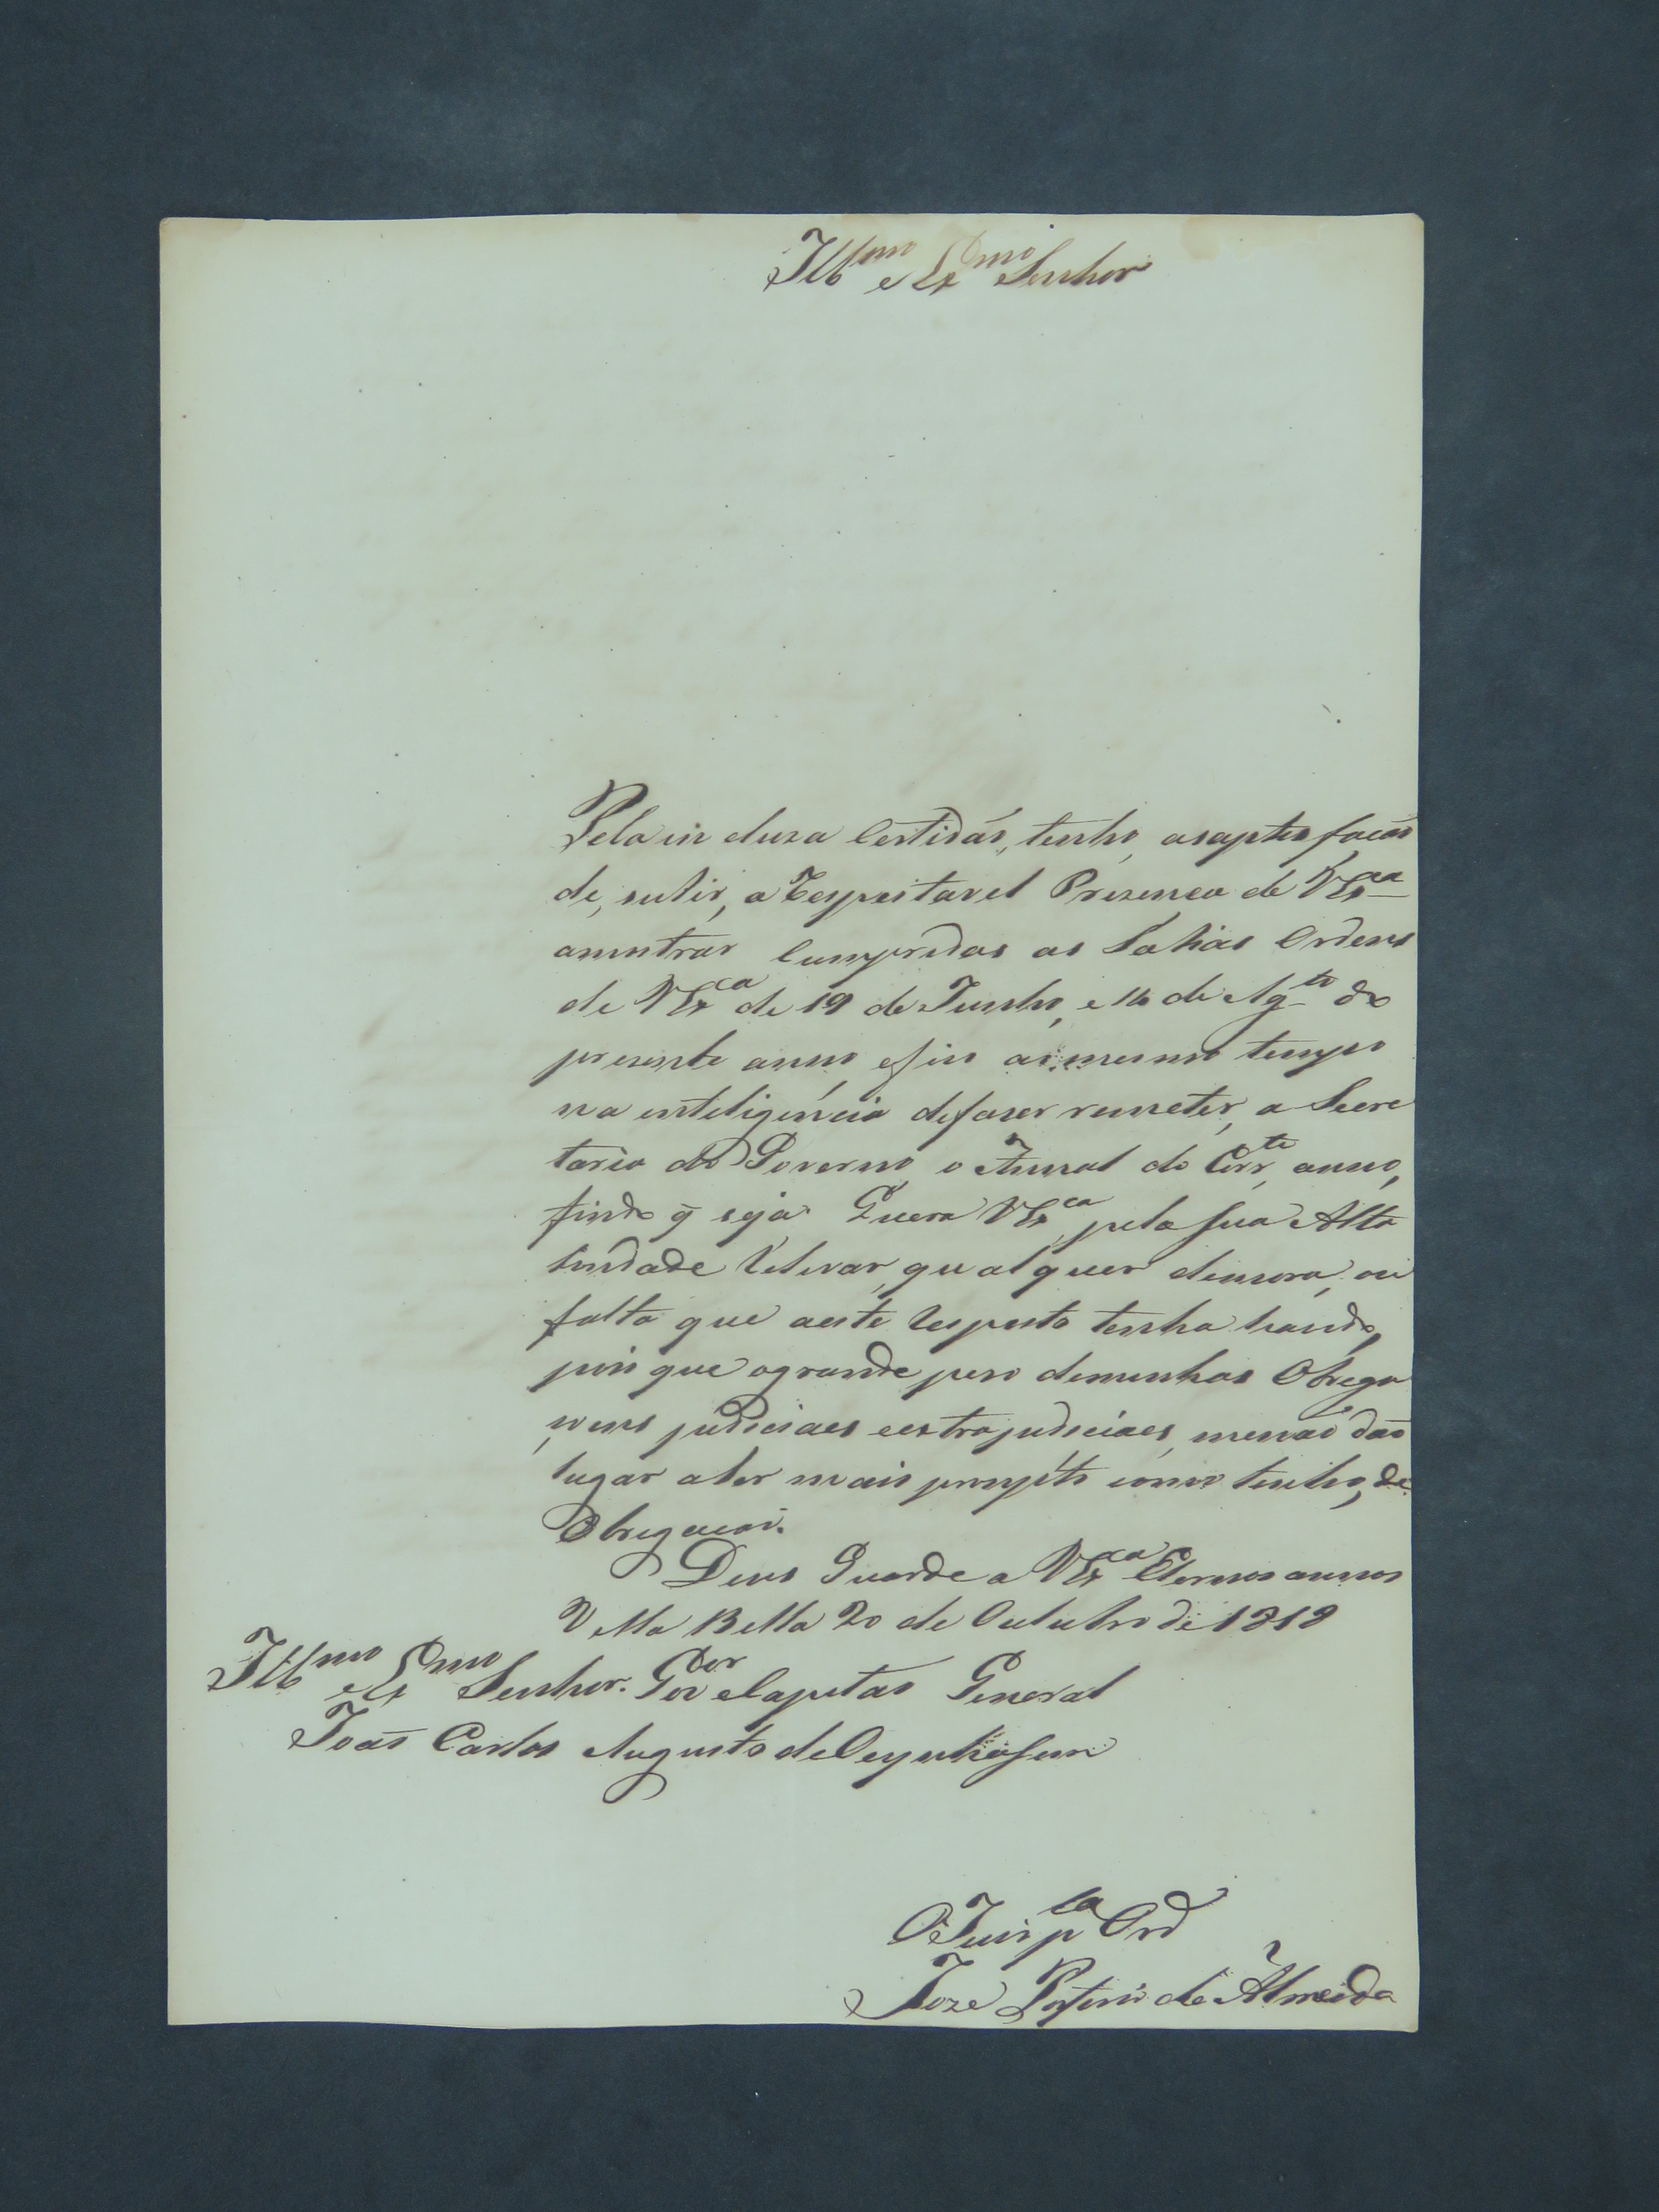 Ill^mo e Ex^mo Senhor
Pela in cluza Certidaõ, tenho, asaptes façaõ
de, subir, a Respeitavel Prezenca de VEx^ca
amostrar Cumpridas as Sabias Ordens
de VEx^ca de 19 de Junho, e 14 de Ag^to do
prezente anno, efico aomesmo tempo
na inteligencia defazer remeter, a Secre
taria do Governo, o Annal do Corr^te, anno,
findo q̃ seja. Queira VEx^ca, pela sua Alta
bondade Relevar, qualquer demora, ou
falta que aeste Respeito tenha havido,
pois que ogrande pezo deminhas Obriga
çoens judiciaes eextrajudiciaes, menaõ daõ
lugar aser mais prompto como tenho, de
Obrigaçaõ.
Deos Guarde a VEx^ca Eternos annos
Villa Bella 20 de Outubro de 1818
Ill^mo e Ex^mo Senhor. Gov^dor eCapitaõ General
Joaõ Carlos Augusto deOeynhausen
OJuis p^la Ord
Joze de Almeida